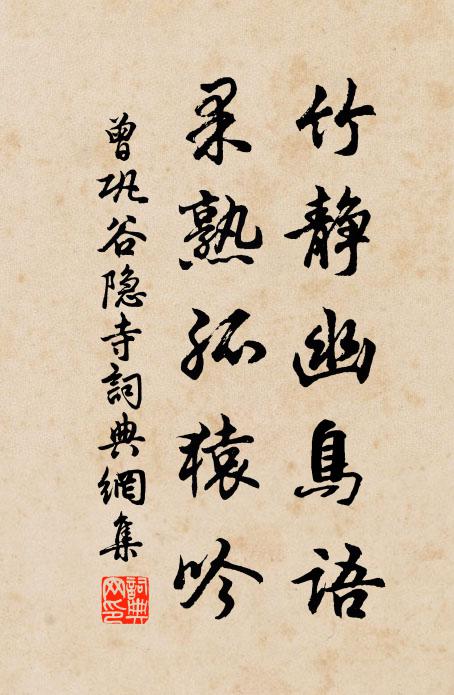 竹静幽鳥語
果熟孤猿吟
曾巩谷隐寺詞典網集
詞典网印